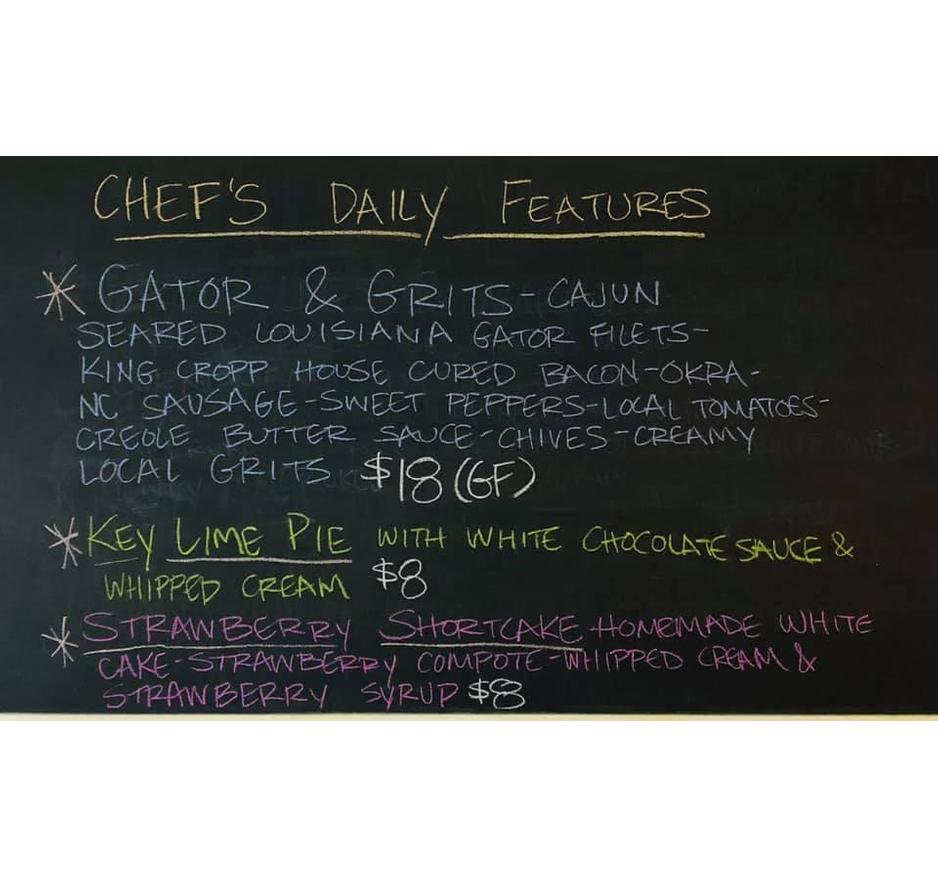 CHEF'S DAILY FEATURES
* GATOR & GRITS - CAJUN
SEARED LOUISIANA GATOR FILETS-
KING CROPP HOUSE CURED BACON-OKRA-
NC SAUSAGE-SWEET PEPPERS-LOCAL TOMATOES-
CREOLE BUTTER SAUCE-CHIVES-CREAMY
LOCAL GRITS $18 (GF)
* KEY LIME PIE WITH WHITE CHOCOLATE SAUCE &
WHIPPED CREAM $8
* STRAWBERRY SHORTCAKE-HOMEMADE WHITE
CAKE-STRAWBERRY COMPOTE-WHIPPED CREAM &
STRAWBERRY SYRUP $8